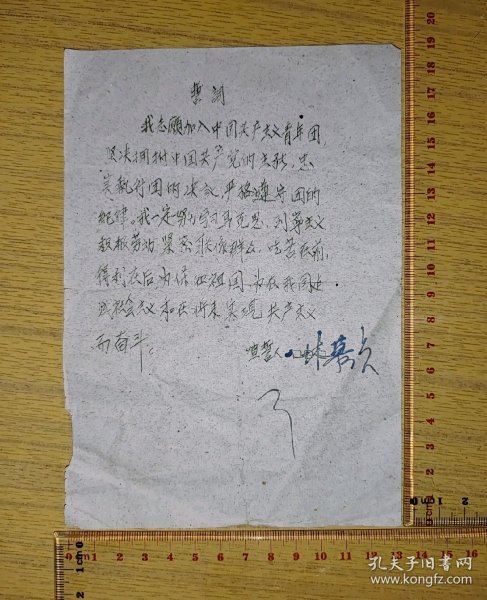 誓词
我志愿加入中国共产主义青年团,
坚决拥护中国共产党的主张,忠
实执行团的决议,严格遵守团的
纪律。我一定努力学习马克思、列宁主义
积极劳动 紧密联系群众,吃苦在前,
得利在后 为保卫祖国,为在我国建
成社会主义和在将来实现共产主义
而奋斗。
宣誓人
孔夫子旧书网
www.kongfz.com
0cm 1 2 3 4 5 6 7 8 9 10 11 12 13 14 15 16